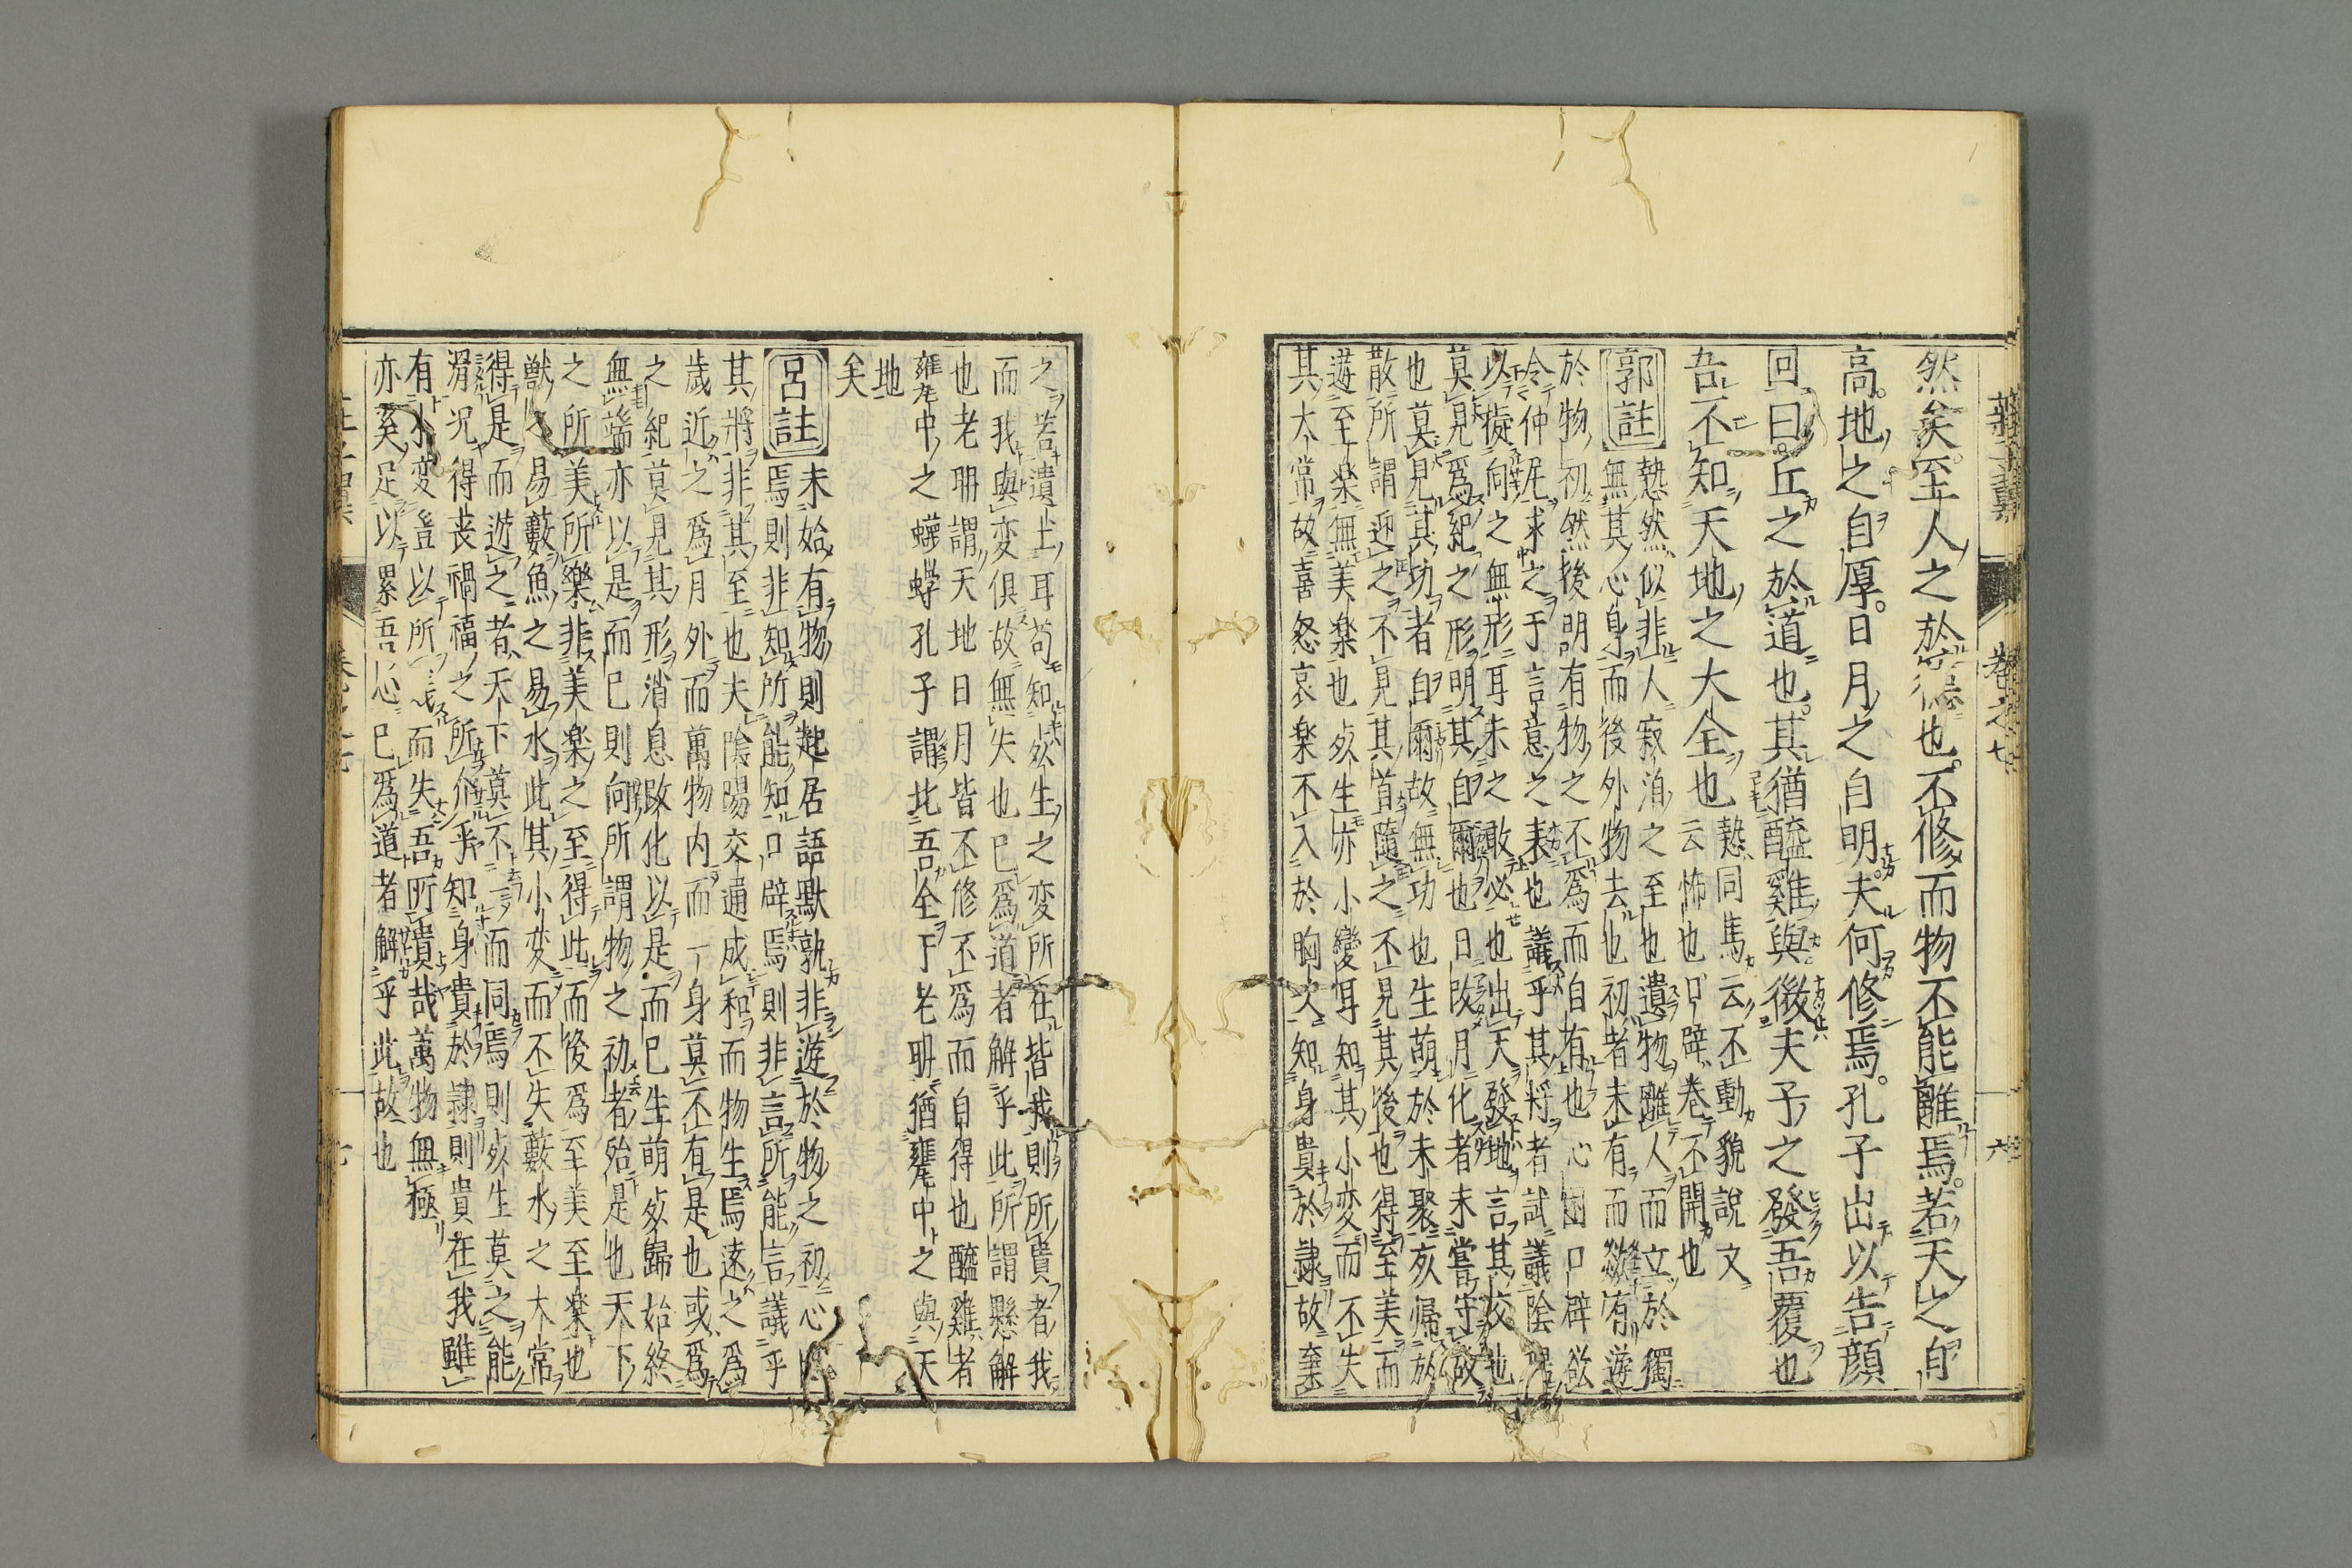 然矣至人之於德也不修而物不能離焉若天之自
高地之自厚日月之自明夫何修焉孔子出以告顔
回曰丘之於道也其猶醯雞與微夫子之發吾覆也
吾不知天地之大全也
慹同馬云不動貌說文
云怖也口辟卷不開也
郭註
慹然似非人寂泊之至也遺物離人而立於獨
無其心身而後外物去也初者未有而欻有遊
於物初然後明有物之不爲而自有也心困口辟欲
令仲尼求之于言意之表也議乎其將者試議陰陽
以擬向之無形耳未之敢必也出天發地言其交也
莫見爲紀之形明其自爾也日改月化者未嘗守故
也莫見其功者自爾故無功也生萌於未聚死歸於
散所謂迎之不見其首隨之不見其後也得至美而
遊至樂無美樂也死生亦小變耳知其小変而不失
其大常故喜怒哀楽不入於胸次知身貴於隷故棄
之若遺土耳苟知死生之変所在皆我則所貴者我
而我與変俱故無失也已爲道者解乎此所謂懸解
也老耼謂天地日月皆不修不爲而自得也醯雞者
甕中之蠛蠓孔子謂比吾全于老耼猶甕中之與天
地
矣
呂註
未始有物則起居語默孰非遊於物之初心
焉則非知所能知口辟焉則非言所能言議乎
其將非其至也夫陰陽交通成和而物生焉遠之爲
歲近之爲月外而萬物内而一身莫不有是也或爲
之紀莫見其形消息改化以是而已生萌死歸始終
無端亦以是而已則向所謂物之初者殆是也天下
之所美所樂非美楽之至得此而後爲至美至楽也
獸易藪魚之易水此其小変而不失藪水之大常
得是而遊之者天下莫不一而同焉則死生莫之能
滑況得喪禍福之所介乎知身貴於隷則貴在我雖
有小変豈以所而失吾所貴哉萬物無極
亦奚足以累吾心已爲道者解乎此故也
卷之七
六